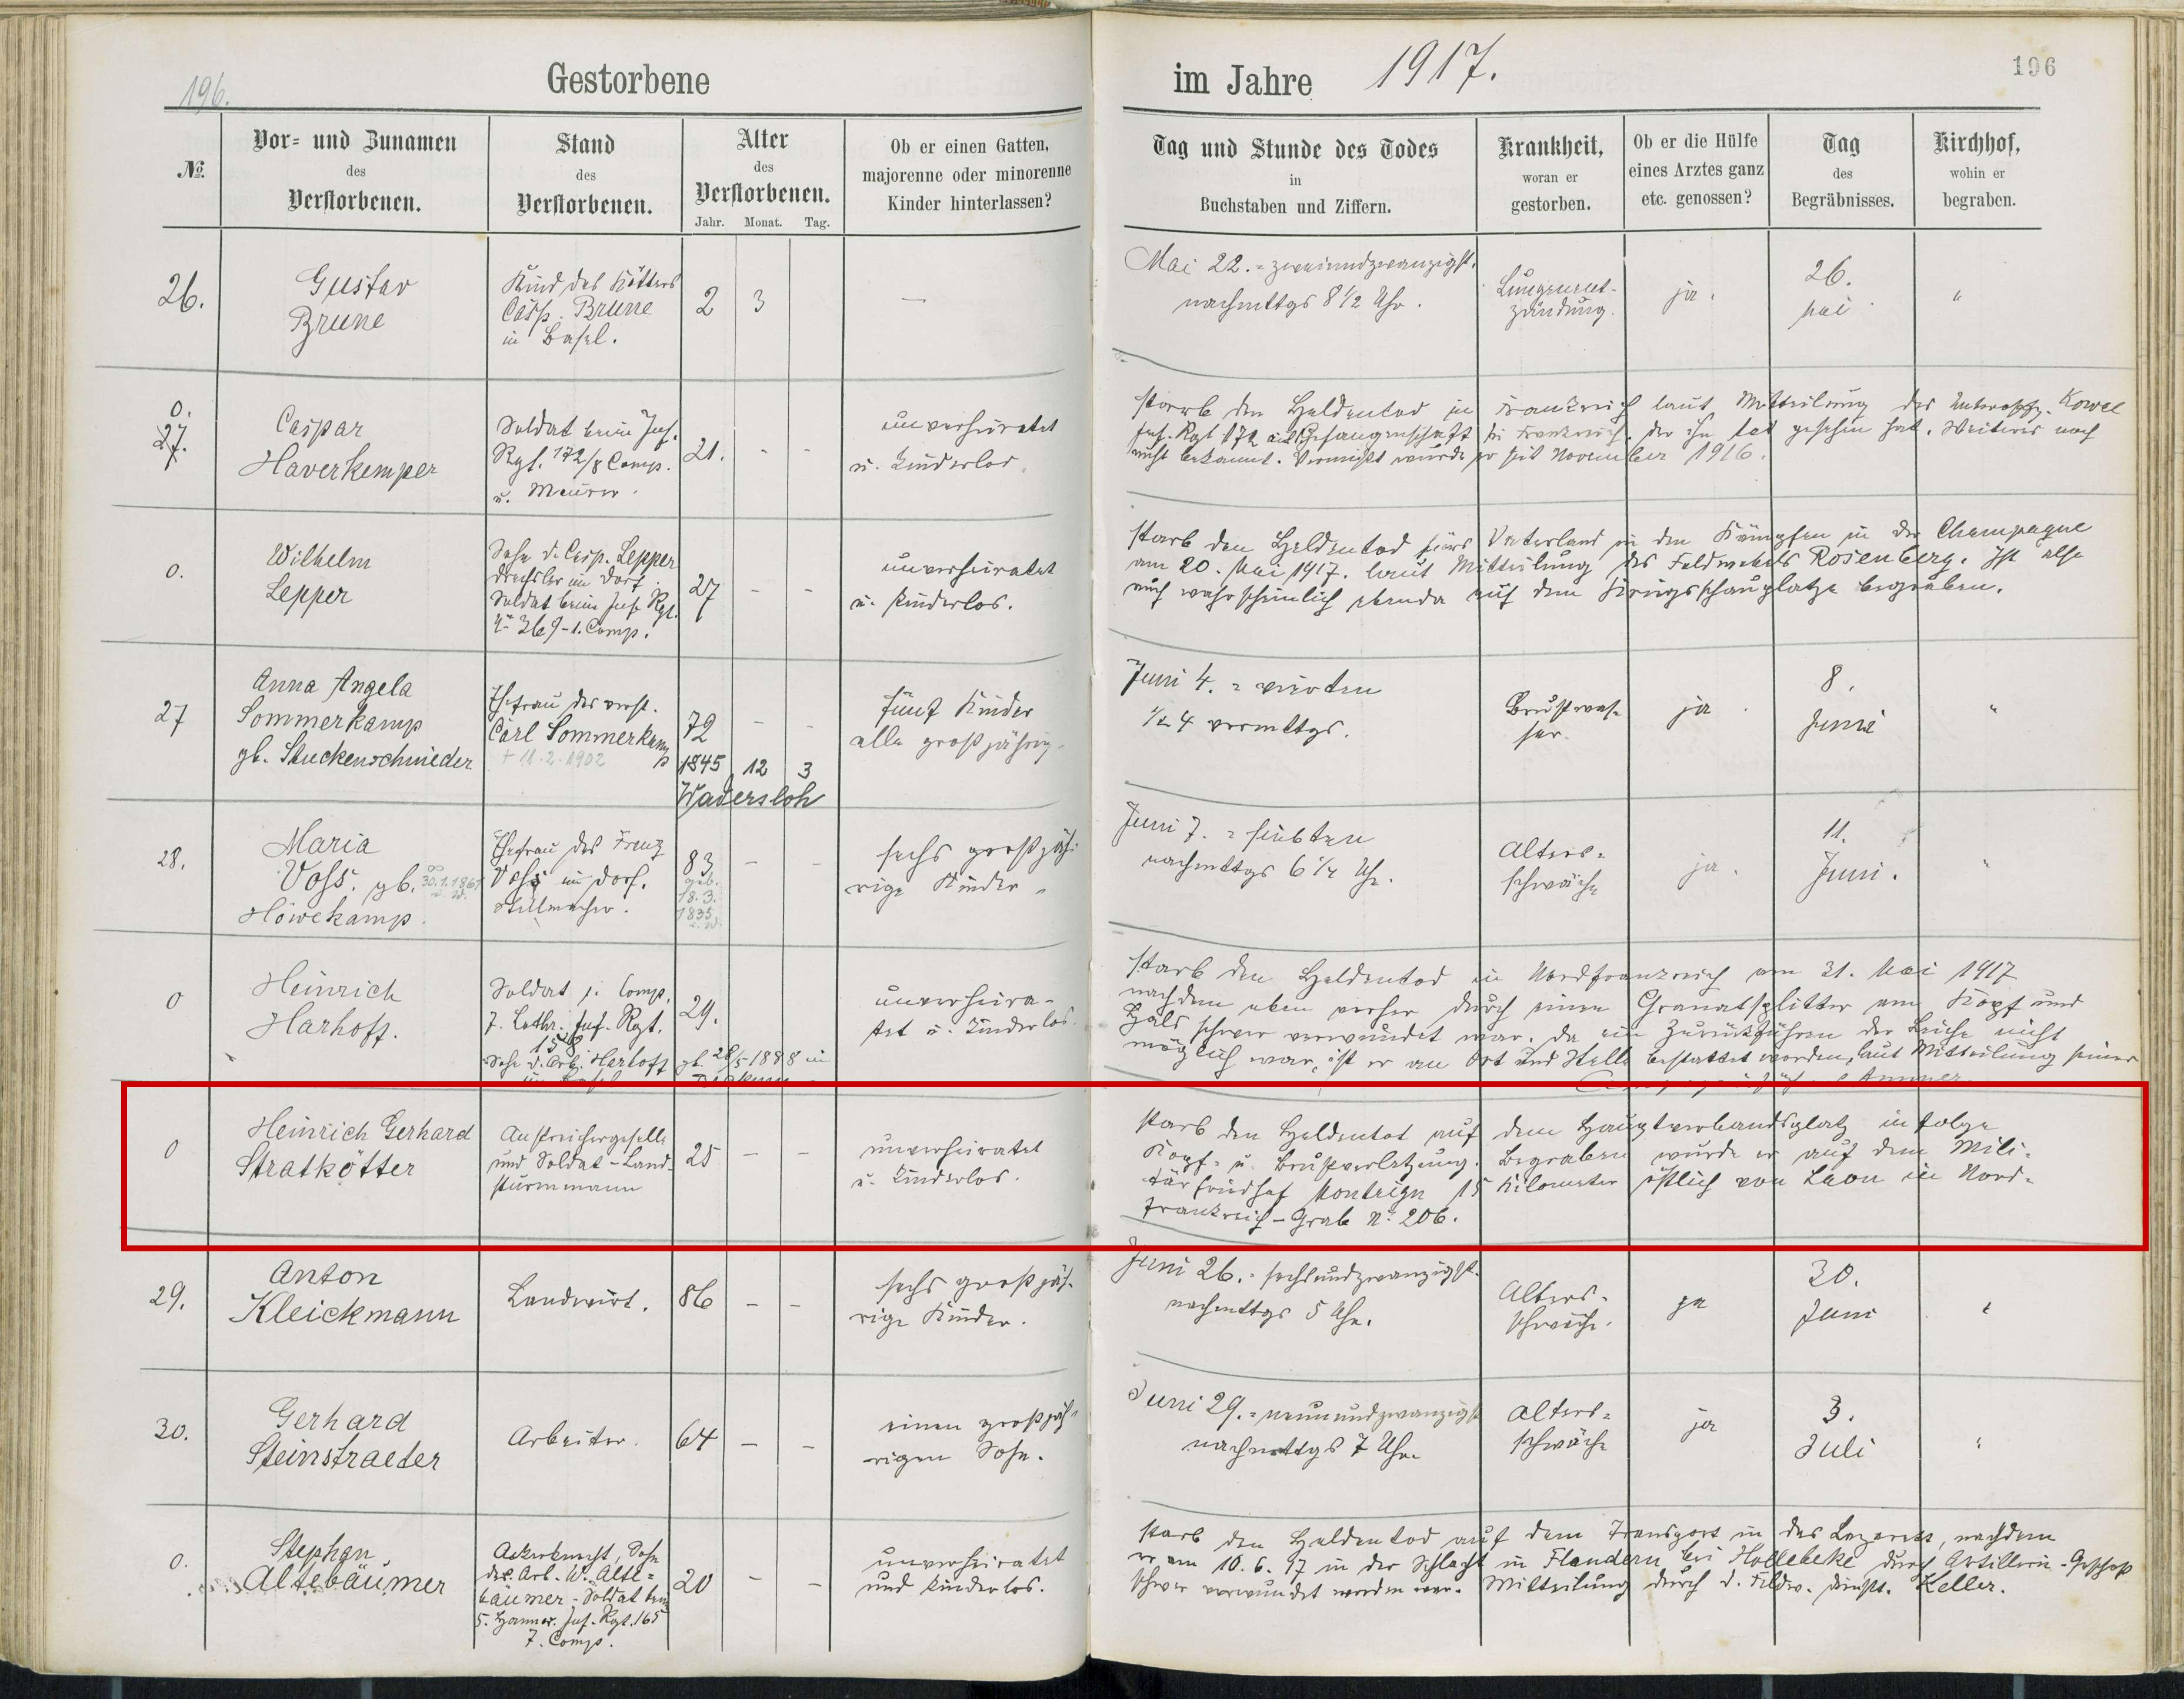 196.
Gestorbene
im Jahre 1917.
196
№.
Vor- und Zunamen
des
Verstorbenen.
Stand
des
Verstorbenen.
Alter
des
Verstorbenen.
Jahr. Monat. Tag.
Ob er einen Gatten,
majorenne oder minorenne
Kinder hinterlassen?
Tag und Stunde des Todes
in
Buchstaben und Ziffern.
Krankheit,
woran er
gestorben.
Ob er die Hülfe
eines Arztes ganz
etc. genossen?
Tag
des
Begräbnisses.
Kirchhof,
wohin er
begraben.
26.
Gustav
Brune
Kind des Kötters
Casp. Brune
in Basel.
2 3
—
Mai 22. = zweiundzwanzigst.
nachmttgs 8 1/2 Uhr.
Lungenent-
zündung.
ja.
26.
Mai
"
0.
27.
Caspar
Haverkemper
Soldat beim Inf.
Rgt. 172/8 Comp.
u. Maurer.
21. - -
unverheiratet
u. kinderlos.
starb den Heldentod in Frankreich laut Mitteilung des Unteroffz. Kowel
Inf. Rgt 172 Gefangenschaft in Frankreich. der ihn tot gesehen hat. Weiteres noch
nicht bekannt. Vermißt wurde er seit November 1916.
0.
Wilhelm
Lepper
Sohn d. Casp. Lepper
Drechsler im Dorf.
Soldat beim Inf. Rgt.
No 369-1. Comp.
27 - -
unverheiratet
u. kinderlos.
starb den Heldentod fürs Vaterland in den Kämpfen in der Champagne
am 20. Mai 1917. laut Mitteilung des Feldwebels Rosenberg. Ist also
auch wahrscheinlich ebenda auf dem Kriegsschauplatze begraben.
27
Anna Angela
Sommerkamp
gb. Stuckenschnieder
Ehefrau des verst.
Carl Sommerkamp
+ 11.2.1902
72 - -
1845 12 3
Wadersloh
fünf Kinder
alle großjährig.
Juni 4. = vierten
1/2 4 vormttgs.
Brustwas-
ser.
ja.
8.
Juni
"
28.
Maria
Voss. gb. 30.1.1861
Höwekamp.
Ehefrau des Franz
Voss im Dorf.
Stellmacher.
83 - -
geb.
18.3.
1835
sechs großjäh-
rige Kinder.
Juni 7. = siebten
nachmttgs 6 1/2 Uhr.
Alters-
schwäche
ja.
11.
Juni.
"
0
Heinrich
Harhoff.
Soldat j. Comp.
7. Lothr. Inf. Rgt.
158
Sohn d. Arb. Harhoff gb. 28/5 1888 in
29.
unverheira-
tet u. kinderlos.
starb den Heldentod in Nordfrankreich am 31. Mai 1917
nachdem eben vorher durch einen Granatsplitter am Kopf und
Hals schwer verwundet war. Da ein Zurückführen der Leiche nicht
möglich war, ist er an Ort und Stelle bestattet worden, laut Mitteilung seines
0
Heinrich Gerhard
Stratkötter
Anstreichergeselle
und Soldat - Land-
sturmmann
25 - -
unverheiratet
u. kinderlos.
starb den Heldentot auf dem Hauptverbandsplatz infolge
Kopf- u. Brustverletzung. Begraben wurde er auf dem Mili-
tärfriedhof Montaign 15 Kilometer östlich von Laon in Nord-
frankreich - Grab No 206.
29.
Anton
Kleickmann
Landwirt.
86 - -
sechs großjäh-
rige Kinder.
Juni 26. = sechsundzwanzigst.
nachmttgs 5 Uhr.
Alters-
schwäche.
ja
30.
Juni
"
30.
Gerhard
Steinstraeter
Arbeiter.
64 - -
einen großjäh-
rigen Sohn.
Juni 29. = neunundzwanzigst
nachmttgs 7 Uhr.
Alters-
schwäche
ja
3.
Juli
"
0.
Stephan
Altebäumer
Ackerknecht, Sohn
des Arb. W. Alte-
bäumer - Soldat beim
5. Hannov. Inf. Rgt. 165
7. Comp.
20 - -
unverheiratet
und kinderlos.
starb den Heldentod auf dem Transport in das Lazarett, nachdem
er am 10.6.17 in der Schlacht in Flandern bei Hollebeke durch Artillerie-Geschoß
schwer verwundet worden war. Mitteilung durch d. Feldw. dienst. Keller.